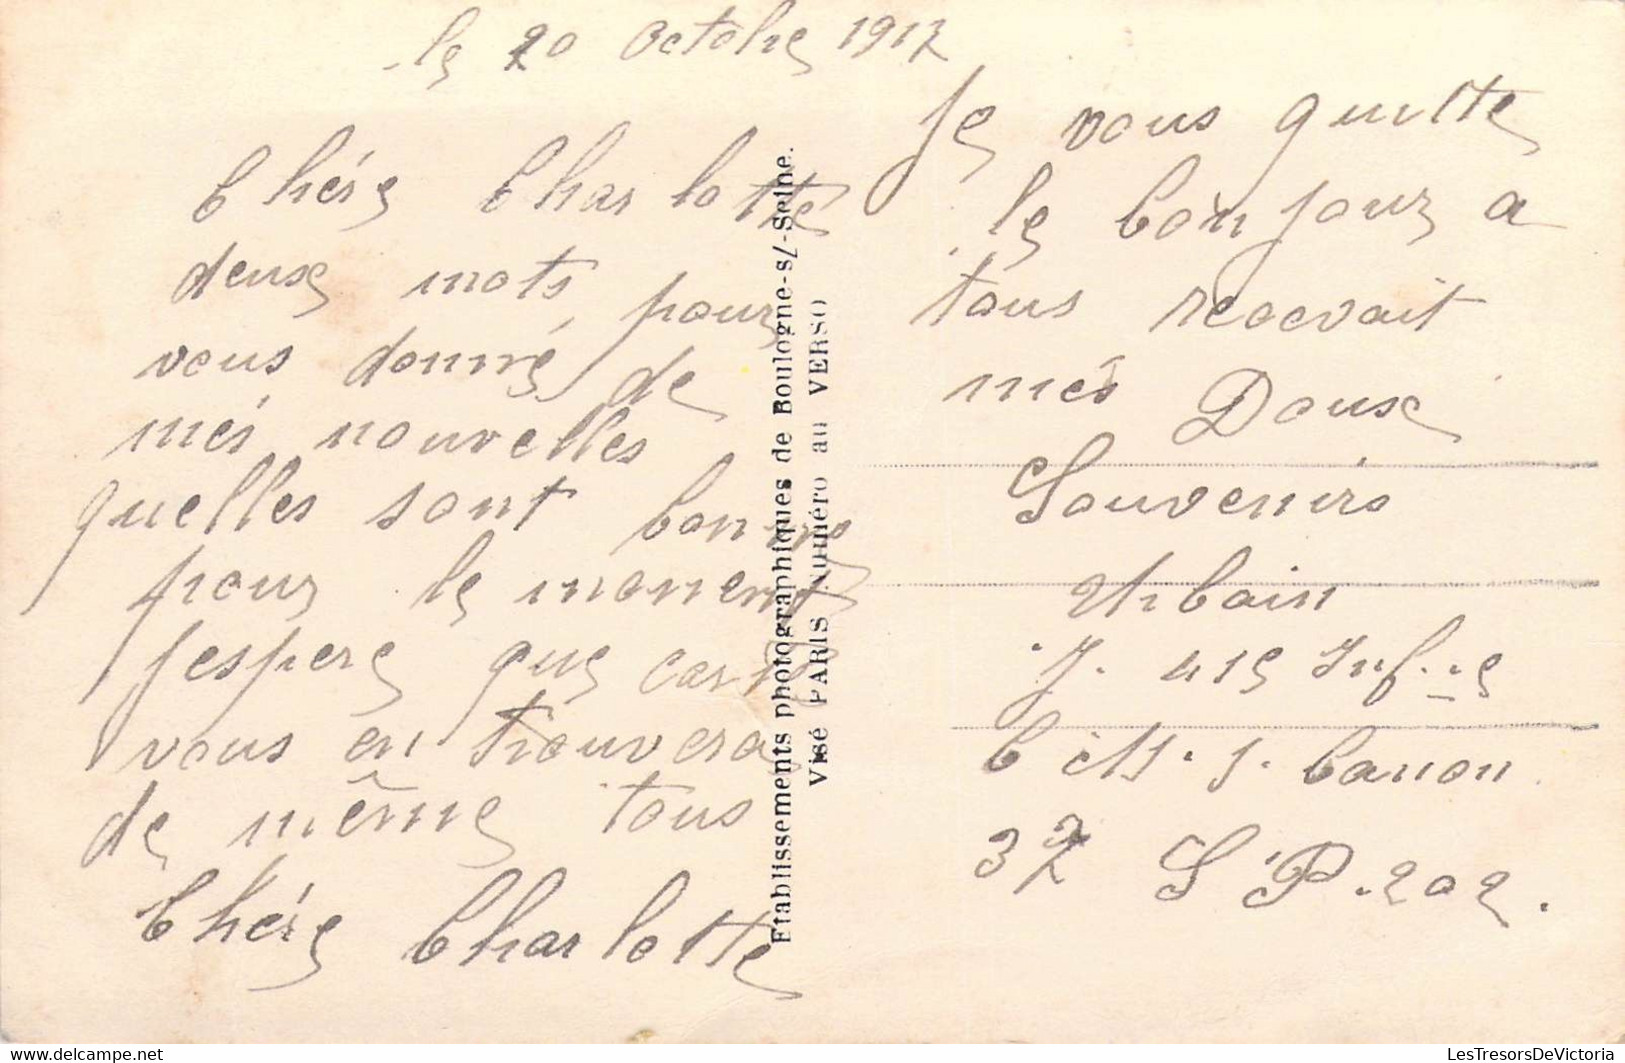 le 20 Octobre 1917
Chére Charlotte
deux mots pour
vous donné de
més nouvelles
quelles sont bonnes
pour le monent
jespere que carte
vous en trouvera
de même tous
Chére Charlotte
Je vous quitte
le bonjour a
tous recevait
més Doux
Souvenirs
Urbain
415 Inf..e
C. M. S. Canon
37 S P. 202.
Etablissements photographiques de Boulogne-s/-Seine.
Visé PARIS Numéro au VERSO
LesTresorsDeVictoria
www.delcampe.net